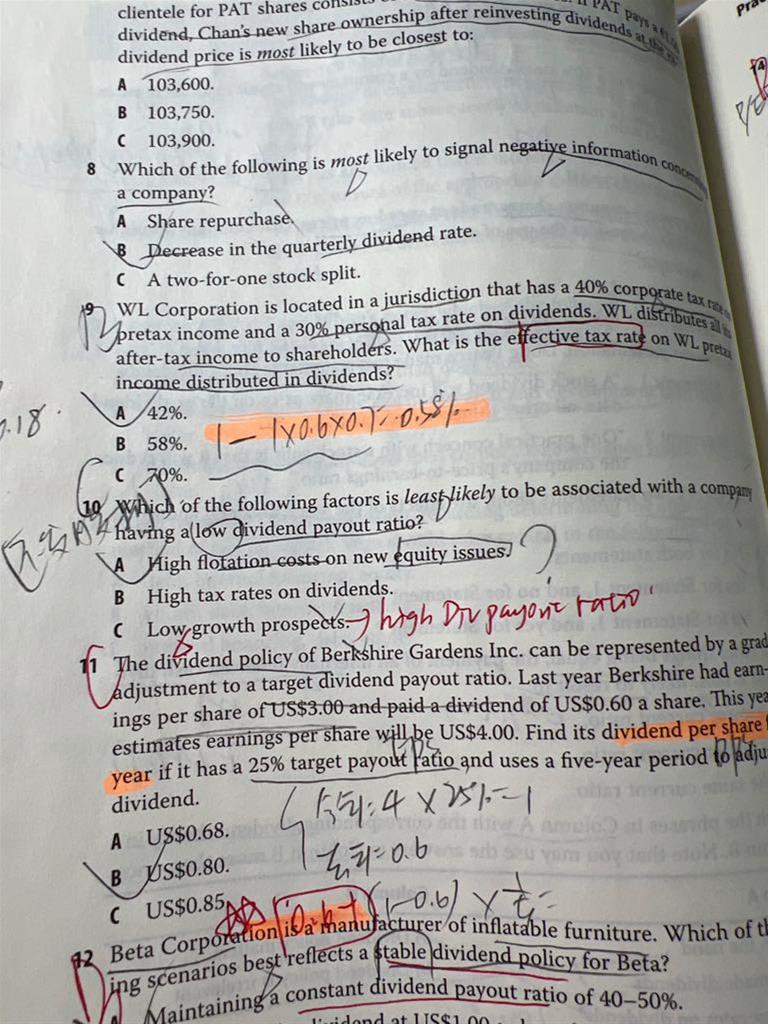 clientele for PAT shares consists If PAT pays a
dividend, Chan's new share ownership after reinvesting dividends at the
dividend price is most likely to be closest to:
A 103,600.
B 103,750.
C 103,900.
8 Which of the following is most likely to signal negative information
a company?
A Share repurchase.
B Decrease in the quarterly dividend rate.
C A two-for-one stock split.
9 WL Corporation is located in a jurisdiction that has a 40% corporate tax rate
pretax income and a 30% personal tax rate on dividends. WL distributes all
after-tax income to shareholders. What is the effective tax rate on WL pretax
income distributed in dividends?
A 42%.
.18.
B 58%. 1-1×0.6×0.7=0.58%
C 70%.
10 Which of the following factors is least likely to be associated with a company
having a low dividend payout ratio?
A High flotation costs on new equity issues. ?
B High tax rates on dividends.
C Low growth prospects. → high Div payout ratio
11 The dividend policy of Berkshire Gardens Inc. can be represented by a
adjustment to a target dividend payout ratio. Last year Berkshire had earn-
ings per share of US$3.00 and paid a dividend of US$0.60 a share. This
estimates earnings per share will be US$4.00. Find its dividend per share
year if it has a 25% target payout ratio and uses a five-year period to
EPS
dividend.
4×25%=1
A US$0.68.
=0.6
B US$0.80.
C US$0.85.
0.6+(1-0.6)×
12 Beta Corporation is a manufacturer of inflatable furniture. Which of
ing scenarios best reflects a stable dividend policy for Beta?
A Maintaining a constant dividend payout ratio of 40–50%.
at US$1.00